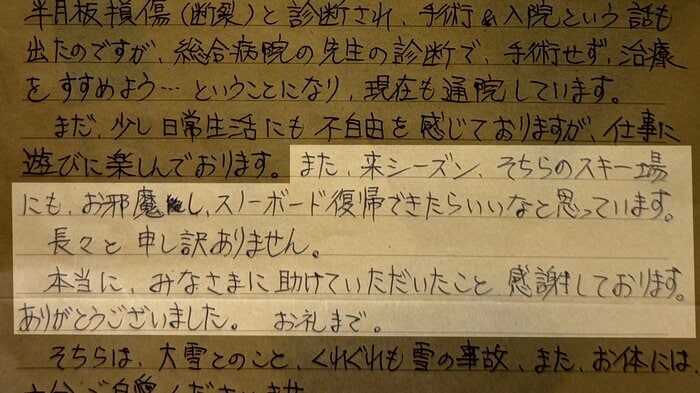 半月板損傷(断裂)と診断され、手術&入院という話も
出たのですが、総合病院の先生の診断で、手術せず、治療
をすすめよう…ということになり、現在も通院しています。
まだ、少し日常生活にも不自由を感じておりますが、仕事に
遊びに楽しんでおります。また、来シーズン、そちらのスキー場
にも、お邪魔し、スノーボード復帰できたらいいなと思っています。
長々と申し訳ありません。
本当に、みなさまに助けていただいたこと感謝しております。
ありがとうございました。 お礼まで。
そちらは、大雪とのこと、くれぐれも雪の事故、また、お体には、
十分ご自愛くださいませ